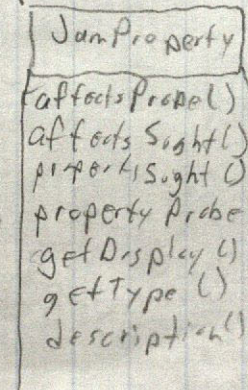 JamProperty
affectsProbe()
affectsSight()
propertySight()
property Probe
getDisplay()
getType()
description()